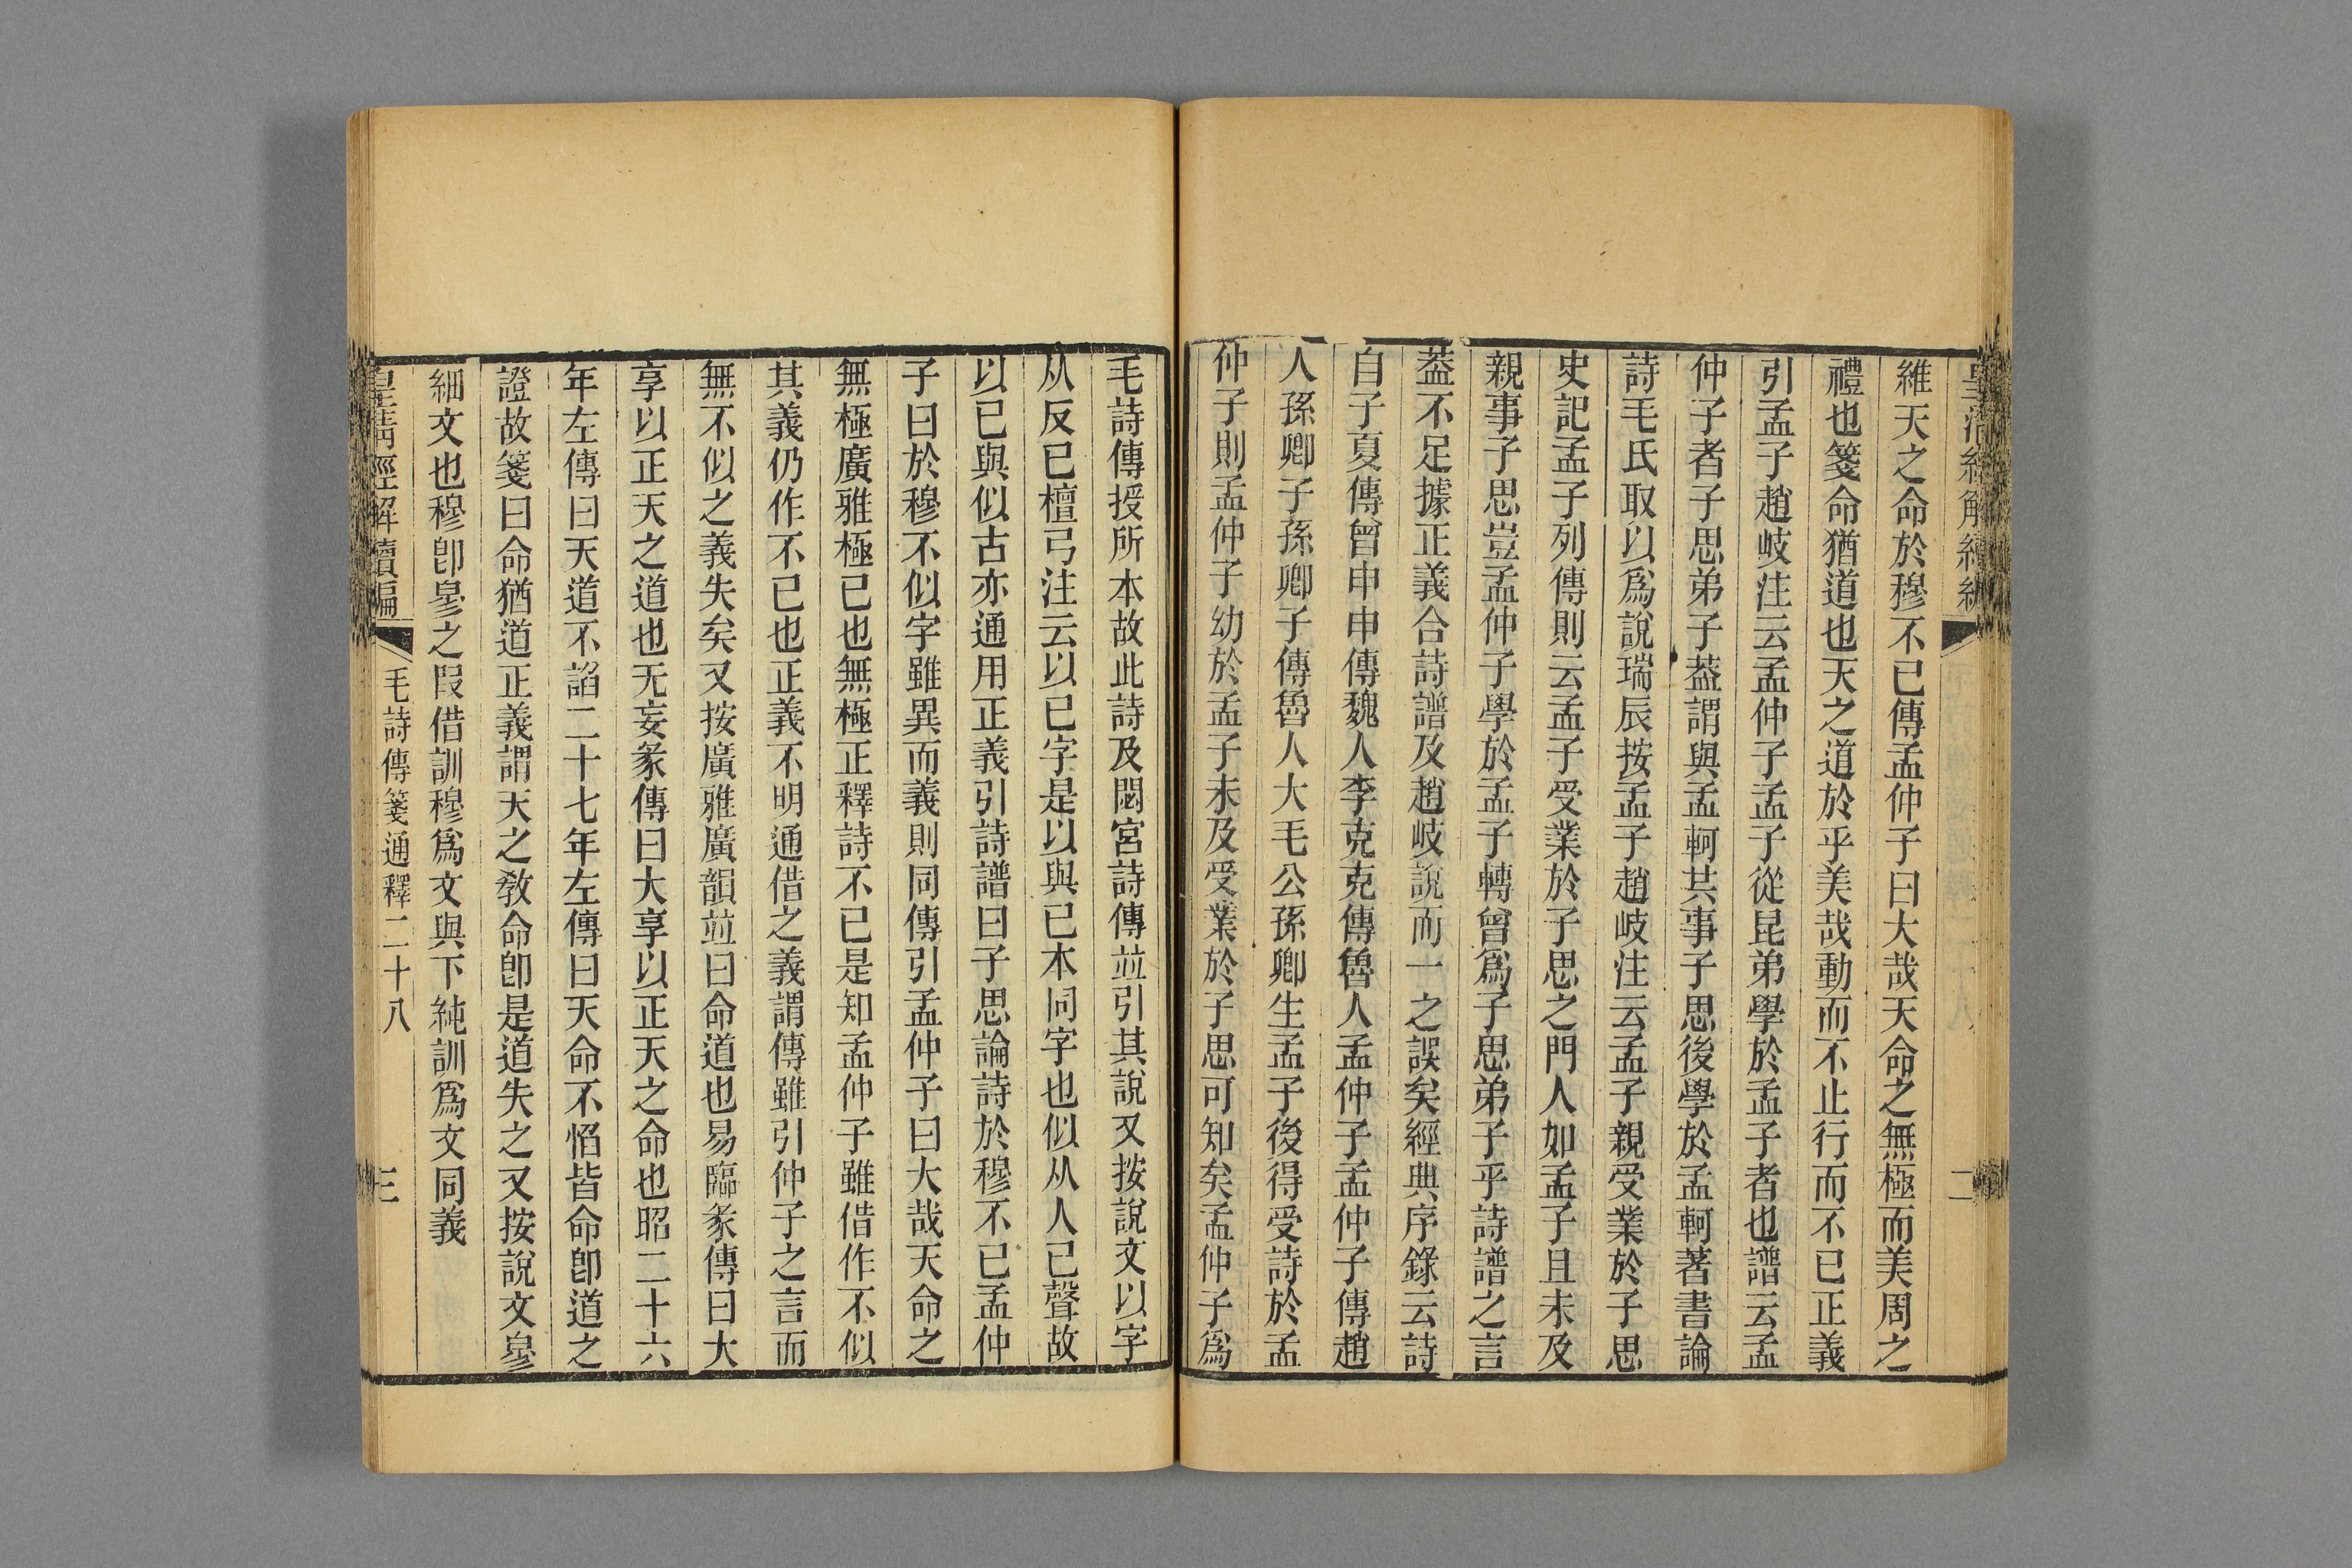 維天之命於穆不已傳孟仲子曰大哉天命之無極而美周之
禮也箋命猶道也天之道於乎美哉動而不止行而不已正義
引孟子趙岐注云孟仲子孟子從昆弟學於孟子者也譜云孟
仲子者子思弟子葢謂與孟軻共事子思後學於孟軻著書論
詩毛氏取以爲說瑞辰按孟子趙岐注云孟子親受業於子思
史記孟子列傳則云孟子受業於子思之門人如孟子且未及
親事子思豈孟仲子學於孟子轉曾爲子思弟子乎詩譜之言
葢不足據正義合詩譜及趙岐說而一之誤矣經典序錄云詩
自子夏傳曾申申傳魏人李克克傳魯人孟仲子孟仲子傳趙
人孫卿子孫卿子傳魯人大毛公孫卿生孟子後得受詩於孟
仲子則孟仲子幼於孟子未及受業於子思可知矣孟仲子爲
毛詩傳授所本故此詩及閟宮詩傳並引其說又按說文以字
从反已檀弓注云以已字是以與已本同字也似从人已聲故
以已與似古亦通用正義引詩譜曰子思論詩於穆不已孟仲
子曰於穆不似字雖異而義則同傳引孟仲子曰大哉天命之
無極廣雅極已也無極正釋詩不已是知孟仲子雖借作不似
其義仍作不已也正義不明通借之義謂傳雖引仲子之言而
無不似之義失矣又按廣雅廣韻並曰命道也易臨彖傳曰大
享以正天之道也无妄彖傳曰大享以正天之命也昭二十六
年左傳曰天道不謟二十七年左傳曰天命不慆皆命卽道之
證故箋曰命猶道正義謂天之敎命卽是道失之又按說文㣎
細文也穆卽㣎之叚借訓穆爲文與下純訓爲文同義
皇淸經解續編
毛詩傳箋通釋二十八
三